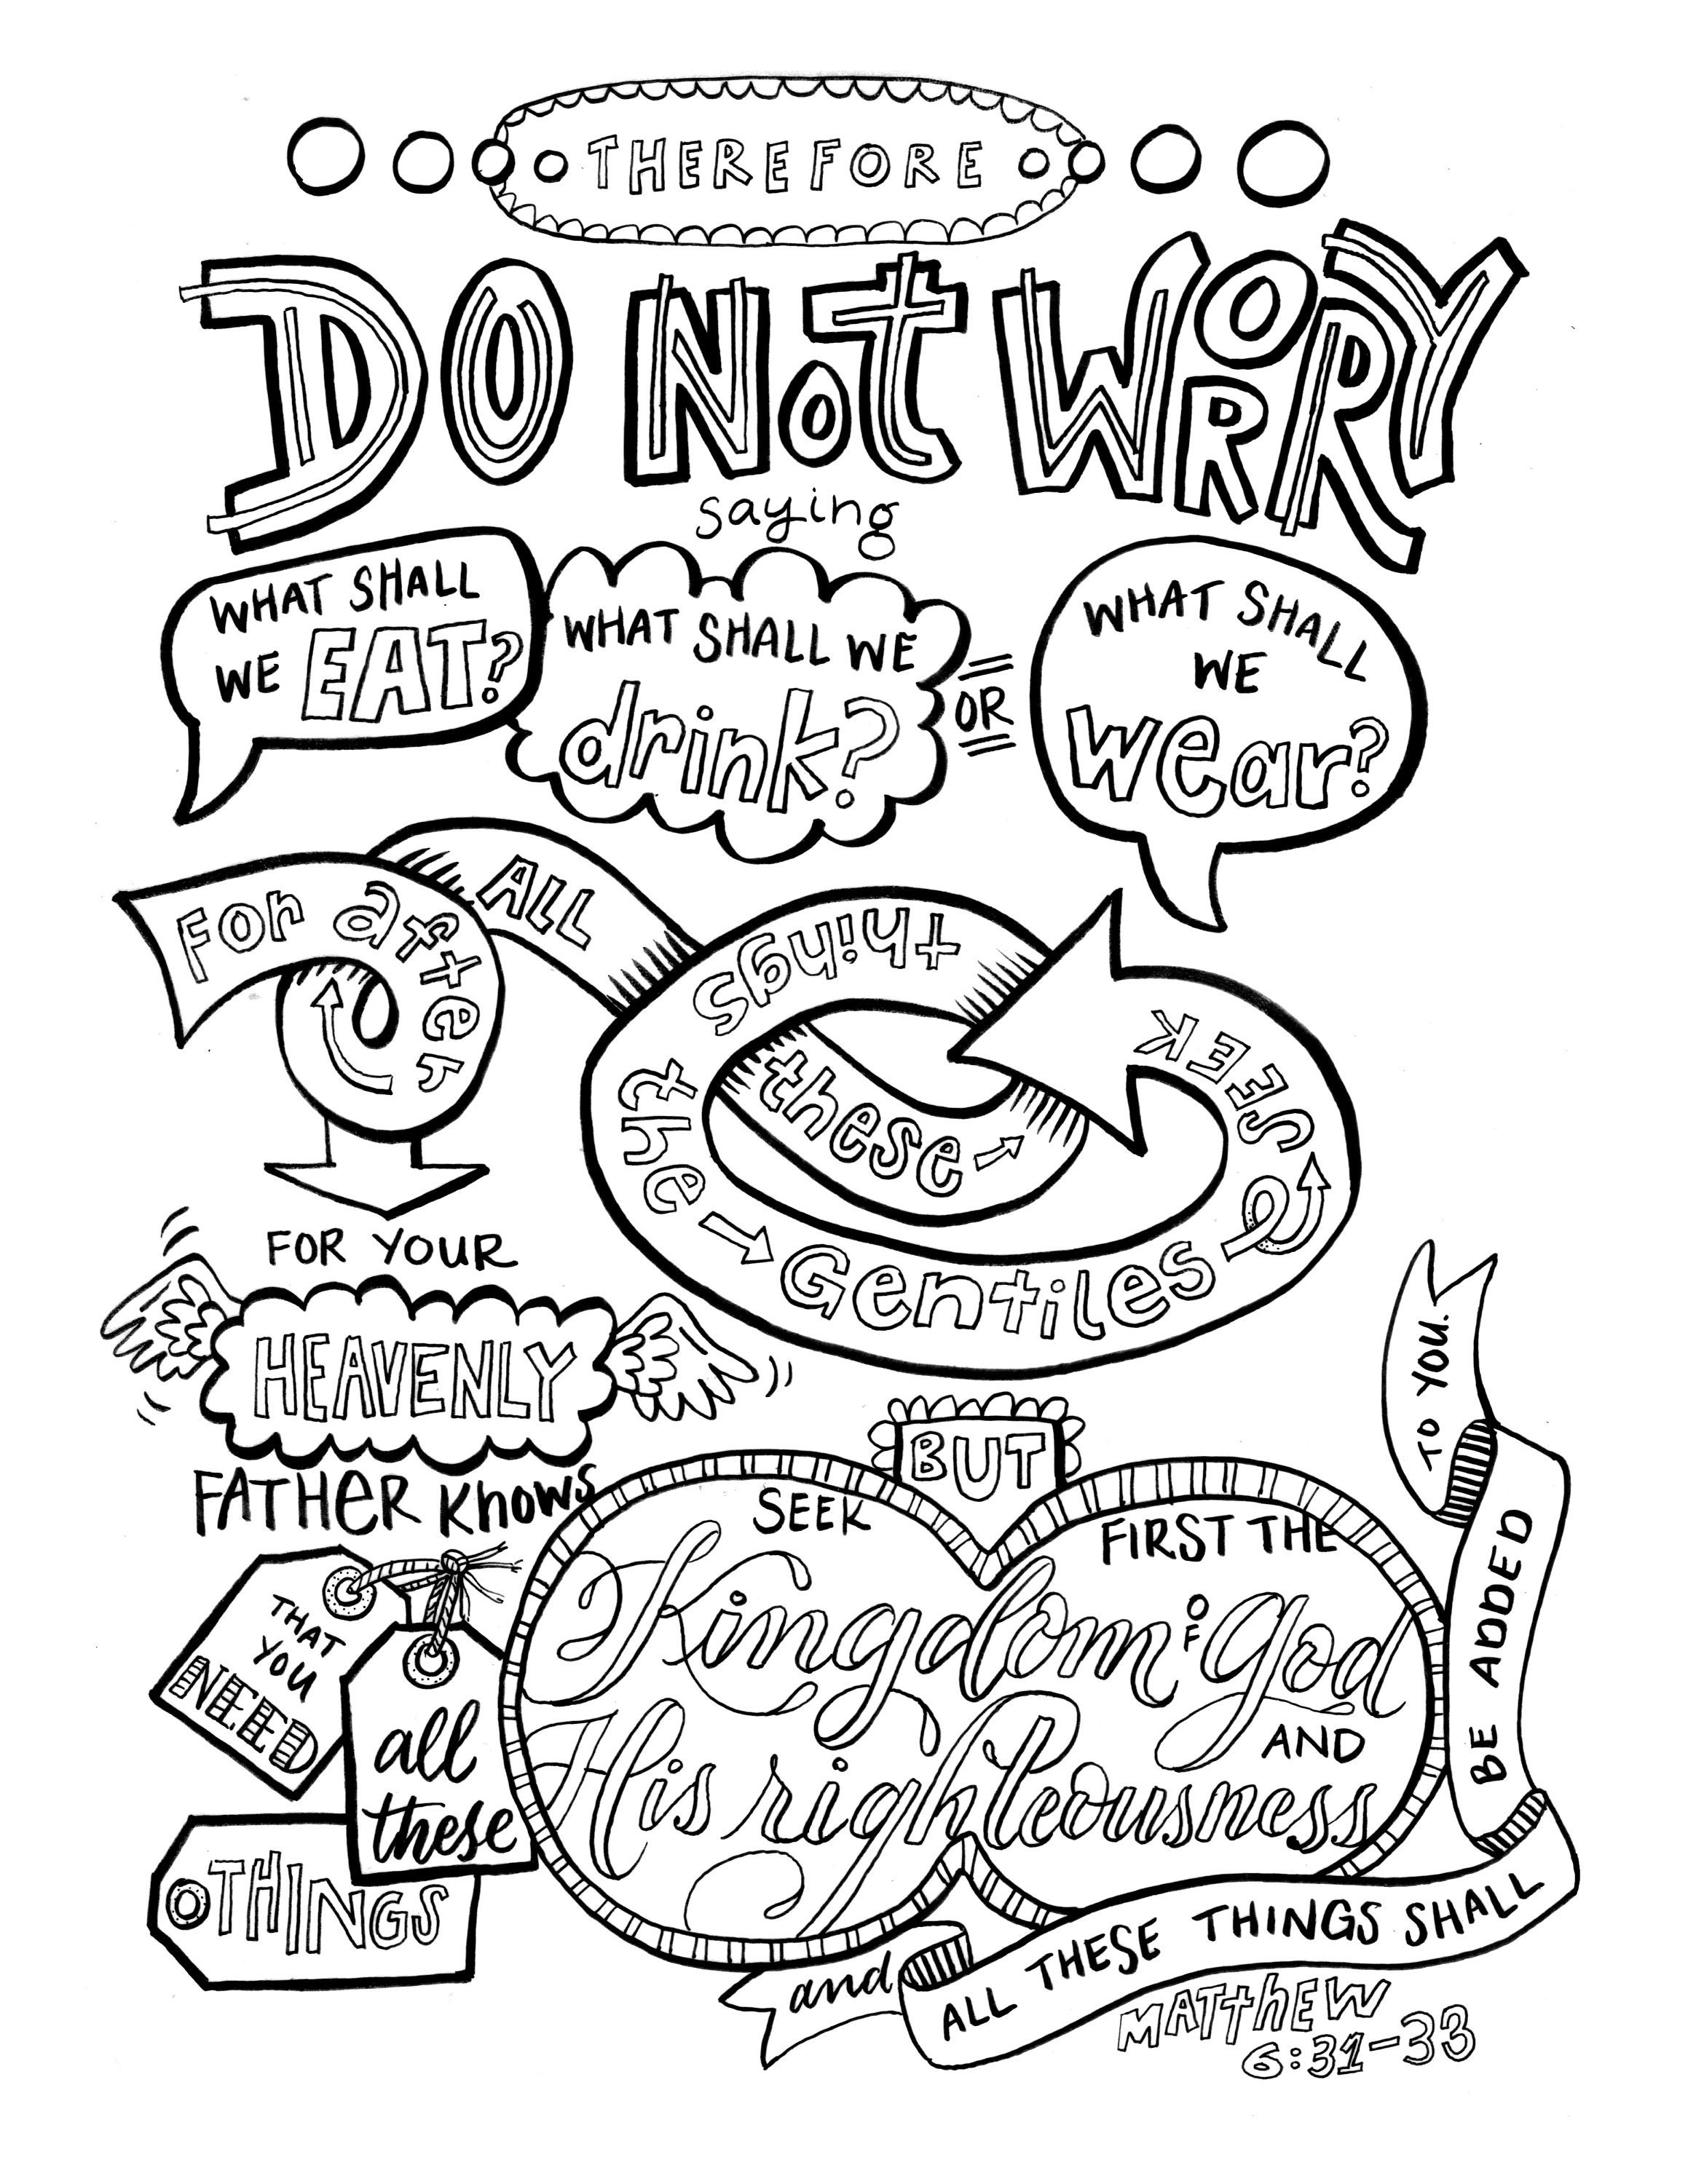 THEREFORE
DO NOT WORRY
saying
WHAT SHALL
WE EAT?
WHAT SHALL WE
drink?
OR
WHAT SHALL
WE
wear?
For after
ALL
these
things
the Gentiles
SEEK
FOR YOUR
HEAVENLY
FATHER KNOWS
THAT
YOU
NEED
all
these
THINGS
BUT
SEEK FIRST THE
Kingdom OF God
AND
His righteousness
and
ALL THESE THINGS SHALL
BE ADDED
TO YOU.
MATTHEW
6:31-33